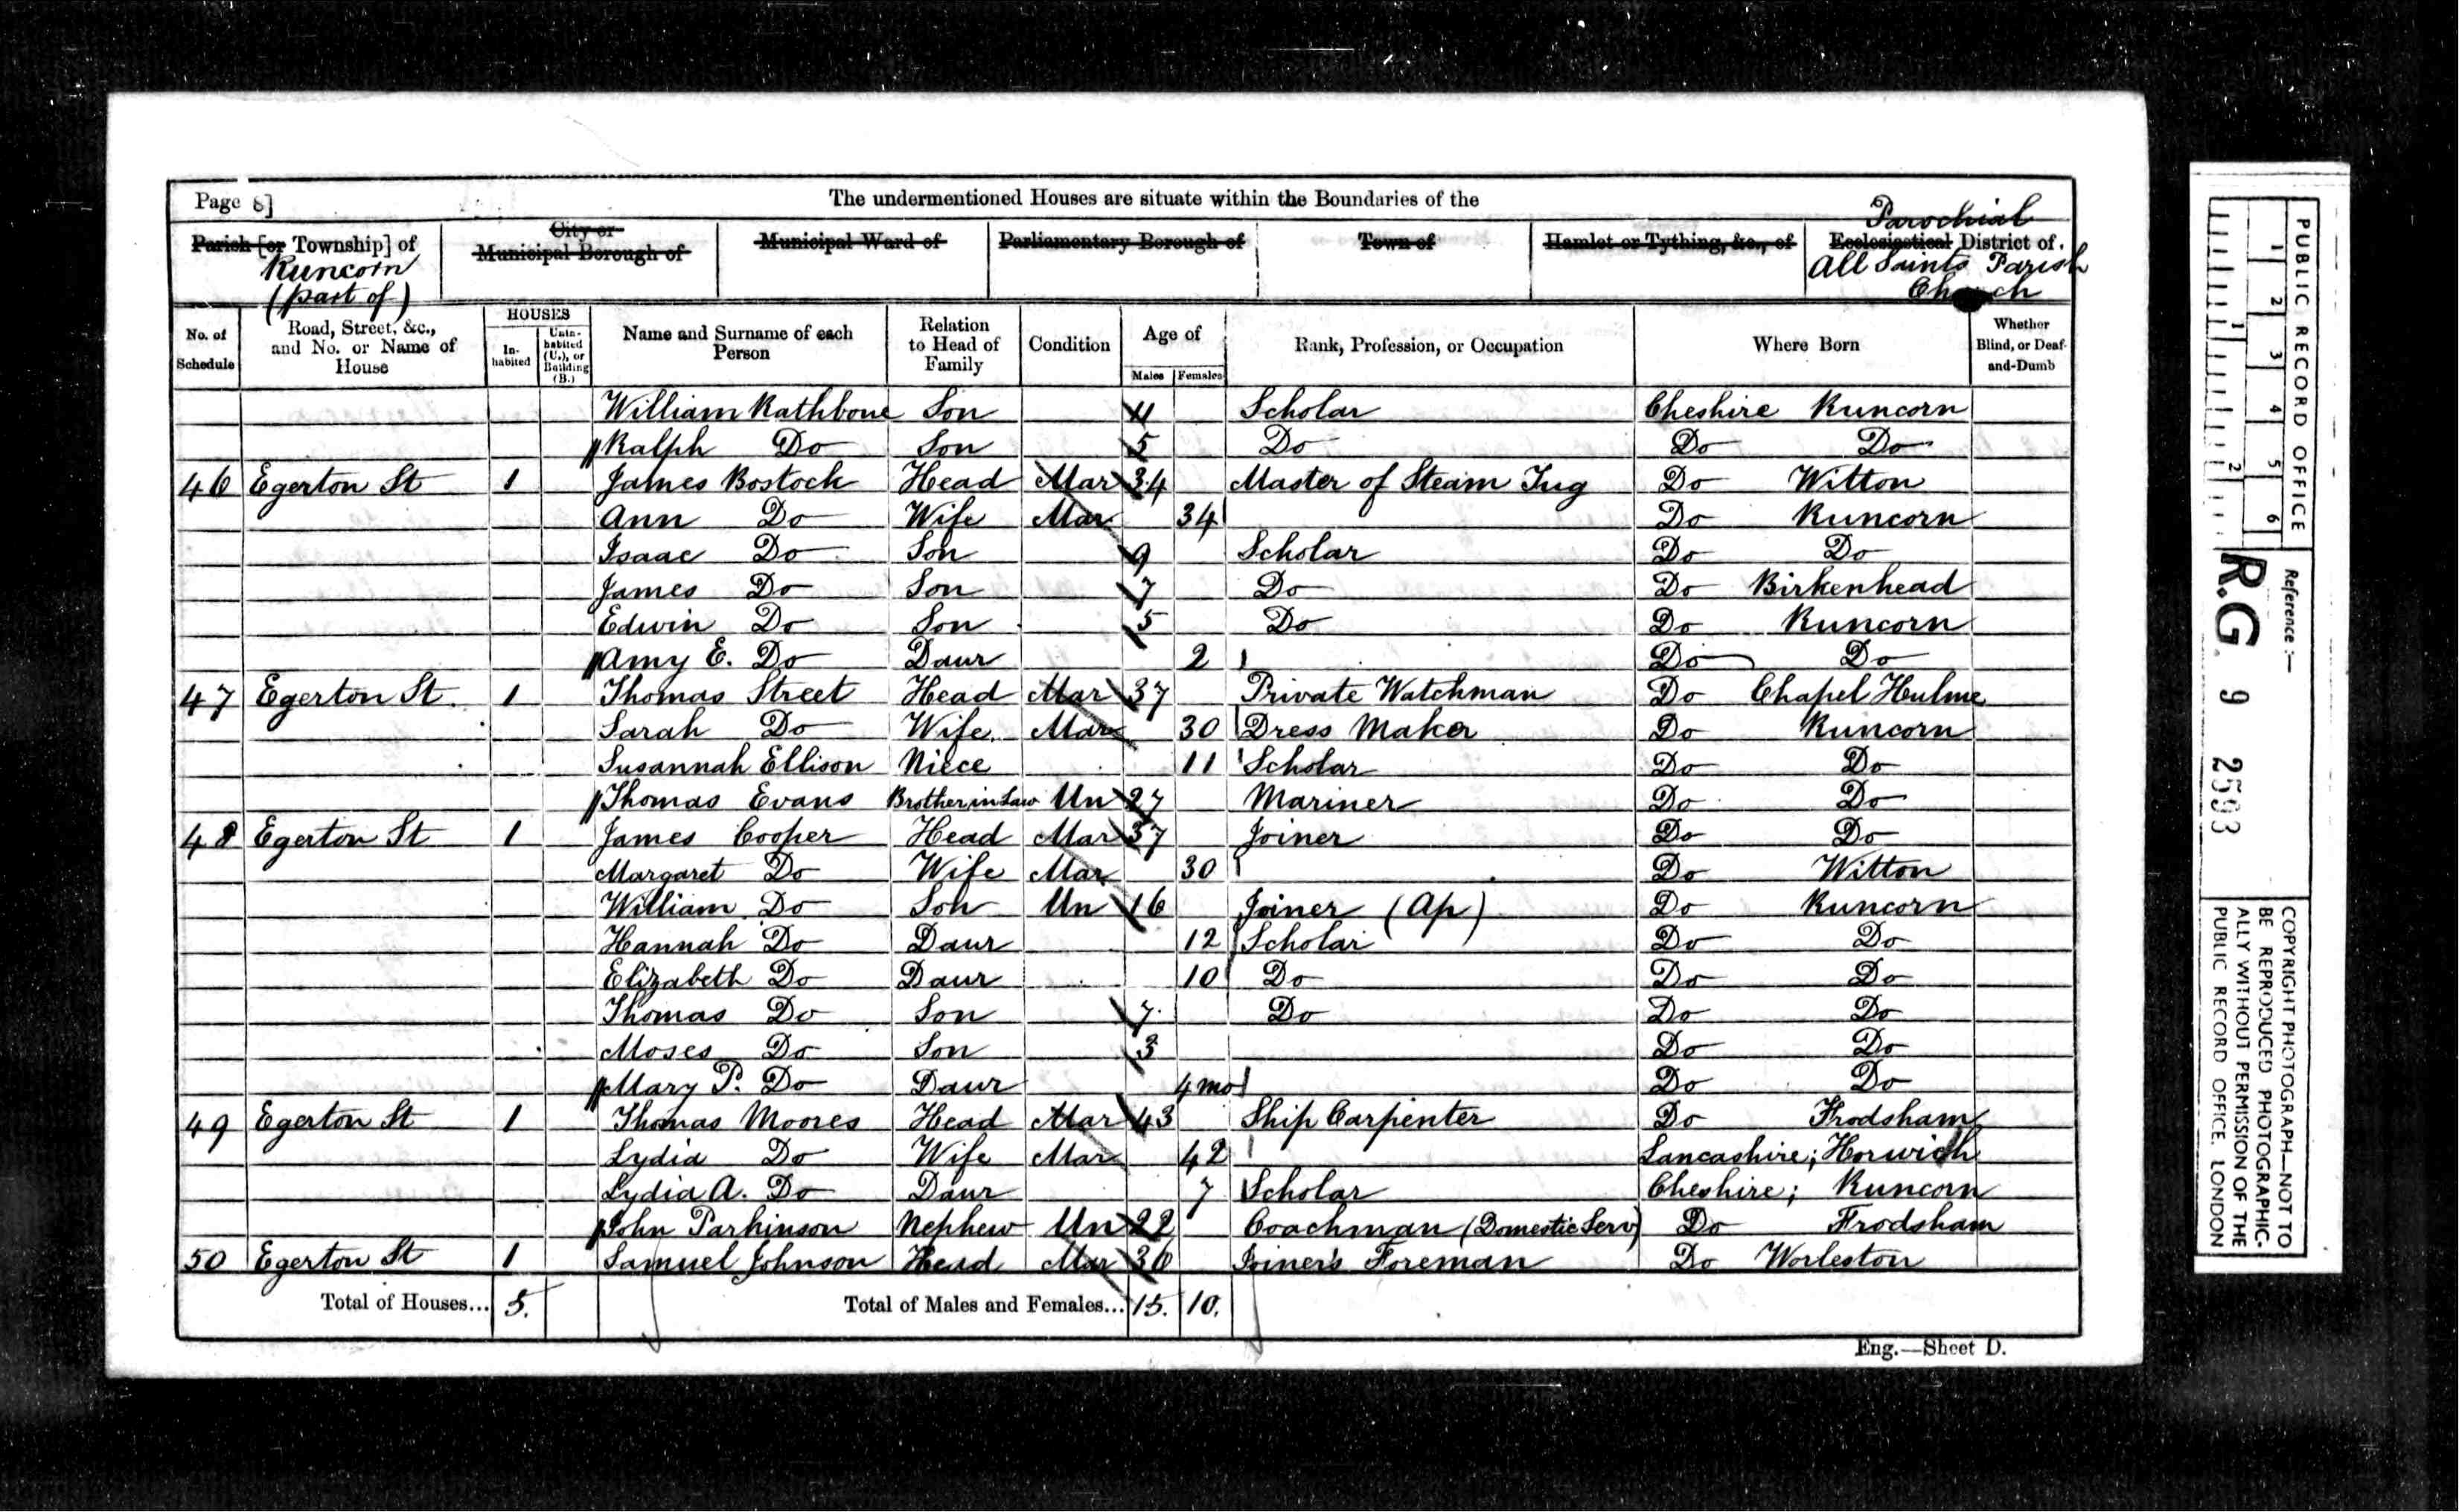 Page 8]
The undermentioned Houses are situate within the Boundaries of the
Parish [or Township] of
Runcorn
(part of)
City or
Municipal Borough of
Municipal Ward of
Parliamentary Borough of
Town of
Hamlet or Tything, &c., of
Parochial
Ecclesiastical District of
All Saints Parish
Church
No. of Schedule
Road, Street, &c., and No. or Name of House
HOUSES
In-habited
Unin-habited (U.), or Building (B.)
Name and Surname of each Person
Relation to Head of Family
Condition
Age of
Males
Females
Rank, Profession, or Occupation
Where Born
Whether Blind, or Deaf-and-Dumb
William Rathbone Son 11 Scholar Cheshire Runcorn
Ralph Do Son 5 Do Do Do
46 Egerton St 1 James Bostock Head Mar 34 Master of Steam Tug Do Witton
Ann Do Wife Mar 34 Do Runcorn
Isaac Do Son 9 Scholar Do Do
James Do Son 7 Do Do Birkenhead
Edwin Do Son 5 Do Do Runcorn
Amy E. Do Daur 2 Do Do
47 Egerton St. 1 Thomas Street Head Mar 37 Private Watchman Do Chapel Hulme
Sarah Do Wife Mar 30 Dress Maker Do Runcorn
Susannah Ellison Niece 11 Scholar Do Do
Thomas Evans Brother in Law Un 27 Mariner Do Do
48 Egerton St 1 James Cooper Head Mar 37 Joiner Do Do
Margaret Do Wife Mar 30 Do Witton
William Do Son Un 16 Joiner (Ap) Do Runcorn
Hannah Do Daur 12 Scholar Do Do
Elizabeth Do Daur 10 Do Do Do
Thomas Do Son 7 Do Do Do
Moses Do Son 3 Do Do
Mary P. Do Daur 4mo Do Do
49 Egerton St 1 Thomas Moores Head Mar 43 Ship Carpenter Do Frodsham
Lydia Do Wife Mar 42 Lancashire; Horwich
Lydia A. Do Daur 7 Scholar Cheshire; Runcorn
John Parkinson Nephew Un 22 Coachman (Domestic Serv) Do Frodsham
50 Egerton St 1 Samuel Johnson Head Mar 36 Joiner's Foreman Do Worleston
Total of Houses... 5.
Total of Males and Females... 15. 10.
Eng.—Sheet D.
PUBLIC RECORD OFFICE
1 2 3 4 5 6
1 2
Reference:—
R.G. 9 2593
COPYRIGHT PHOTOGRAPH—NOT TO
BE REPRODUCED PHOTOGRAPHIC-
ALLY WITHOUT PERMISSION OF THE
PUBLIC RECORD OFFICE, LONDON